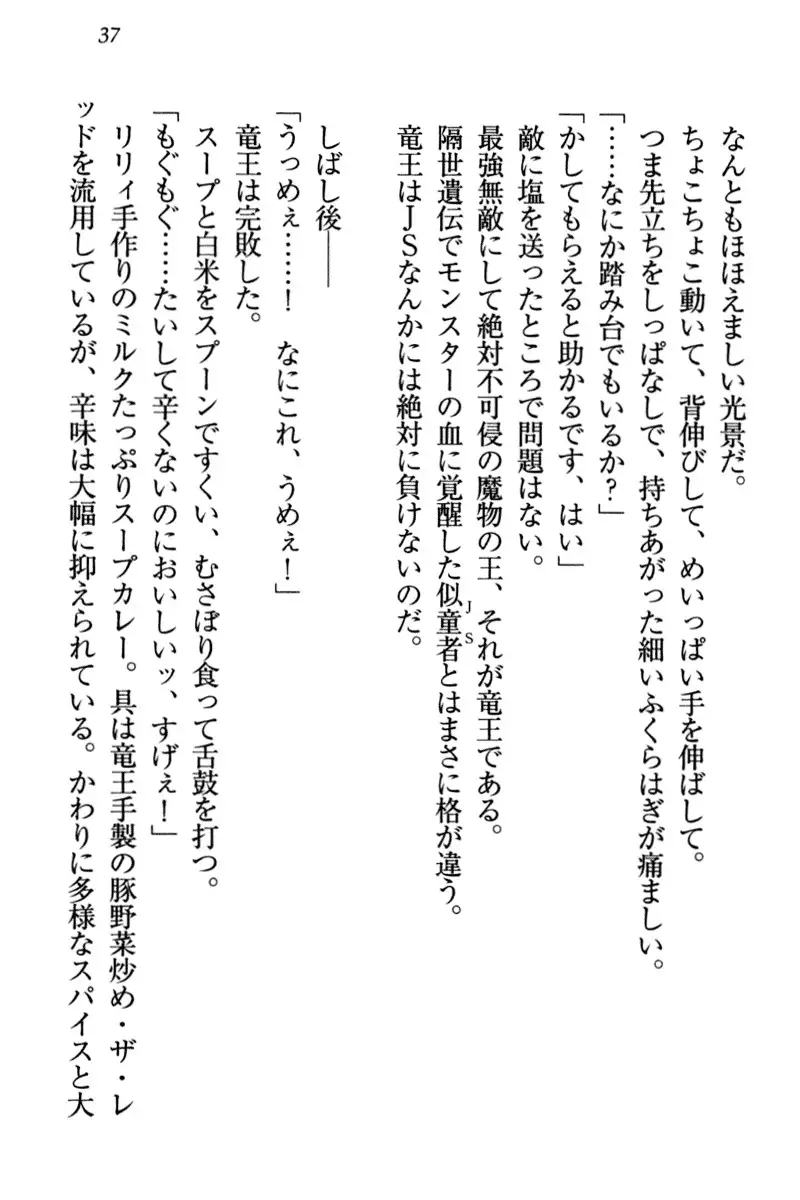 37
なんともほほえましい光景だ。
ちょこちょこ動いて、背伸びして、めいっぱい手を伸ばして。
つま先立ちをしっぱなしで、持ちあがった細いふくらはぎが痛ましい。
「……なにか踏み台でもいるか?」
「かしてもらえると助かるです、はい」
敵に塩を送ったところで問題はない。
最強無敵にして絶対不可侵の魔物の王、それが竜王である。
隔世遺伝でモンスターの血に覚醒した似童者とはまさに格が違う。
JS
竜王はJSなんかには絶対に負けないのだ。
しばし後――
「うっめぇ……! なにこれ、うめぇ!」
竜王は完敗した。
スープと白米をスプーンですくい、むさぼり食って舌鼓を打つ。
「もぐもぐ……たいして辛くないのにおいしいッ、すげぇ!」
リリィ手作りのミルクたっぷりスープカレー。具は竜王手製の豚野菜炒め・ザ・レ
ッドを流用しているが、辛味は大幅に抑えられている。かわりに多様なスパイスと大